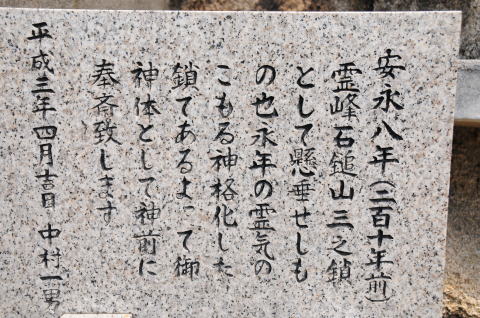 安永八年(二百十年前)
霊峰石鎚山三之鎖
として懸垂せしも
の也永年の霊気の
こもる神格化した
鎖であるよって御
神体として神前に
奉斎致します
平成三年四月吉日 中村一男